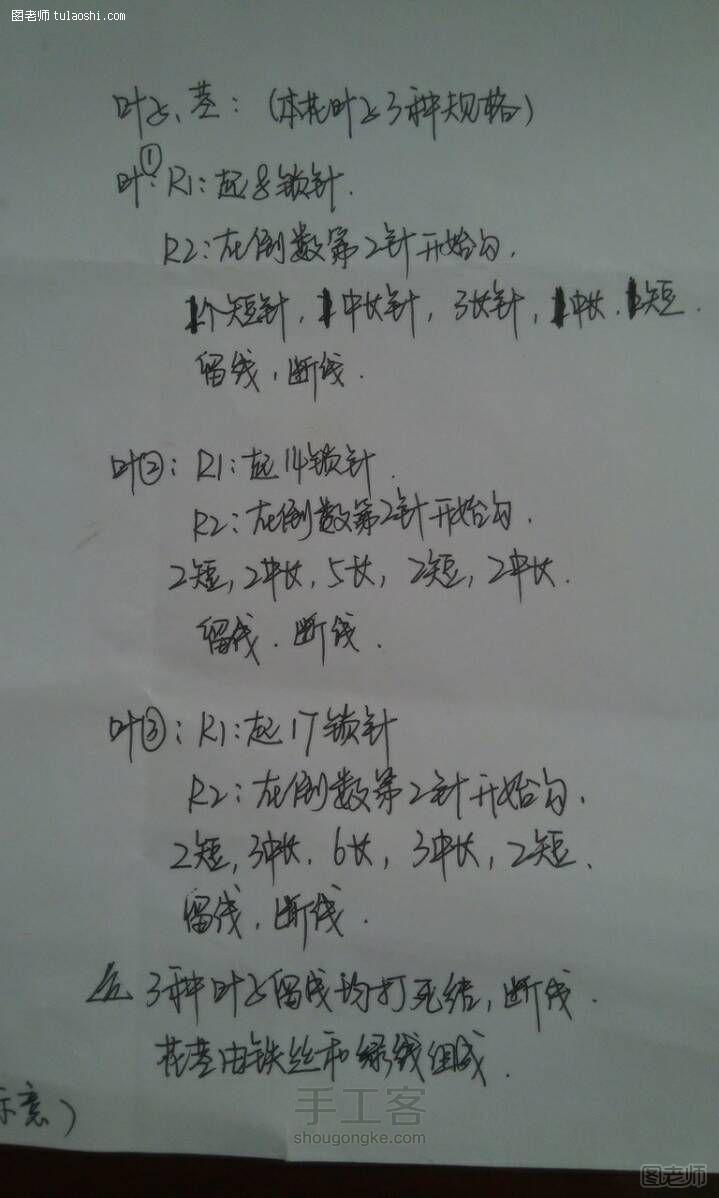 图老师 tulaoshi.com
叶子、茎：（本花叶子3种规格）
叶①：R1：起8锁针.
R2：在倒数第2针开始勾.
1个短针，1中长针，3长针，1中长.1短.
留线，断线.
叶②：R1：起14锁针.
R2：在倒数第2针开始勾.
2短，2中长，5长，2短，2中长.
留线.断线.
叶③：R1：起17锁针
R2：在倒数第2针开始勾.
2短，3中长.6长，3中长，2短.
留线，断线.
3种叶子留线均打死结，断线.
花茎由铁丝和绿线组成.
示意）
手工客
shougongke.com
图老师